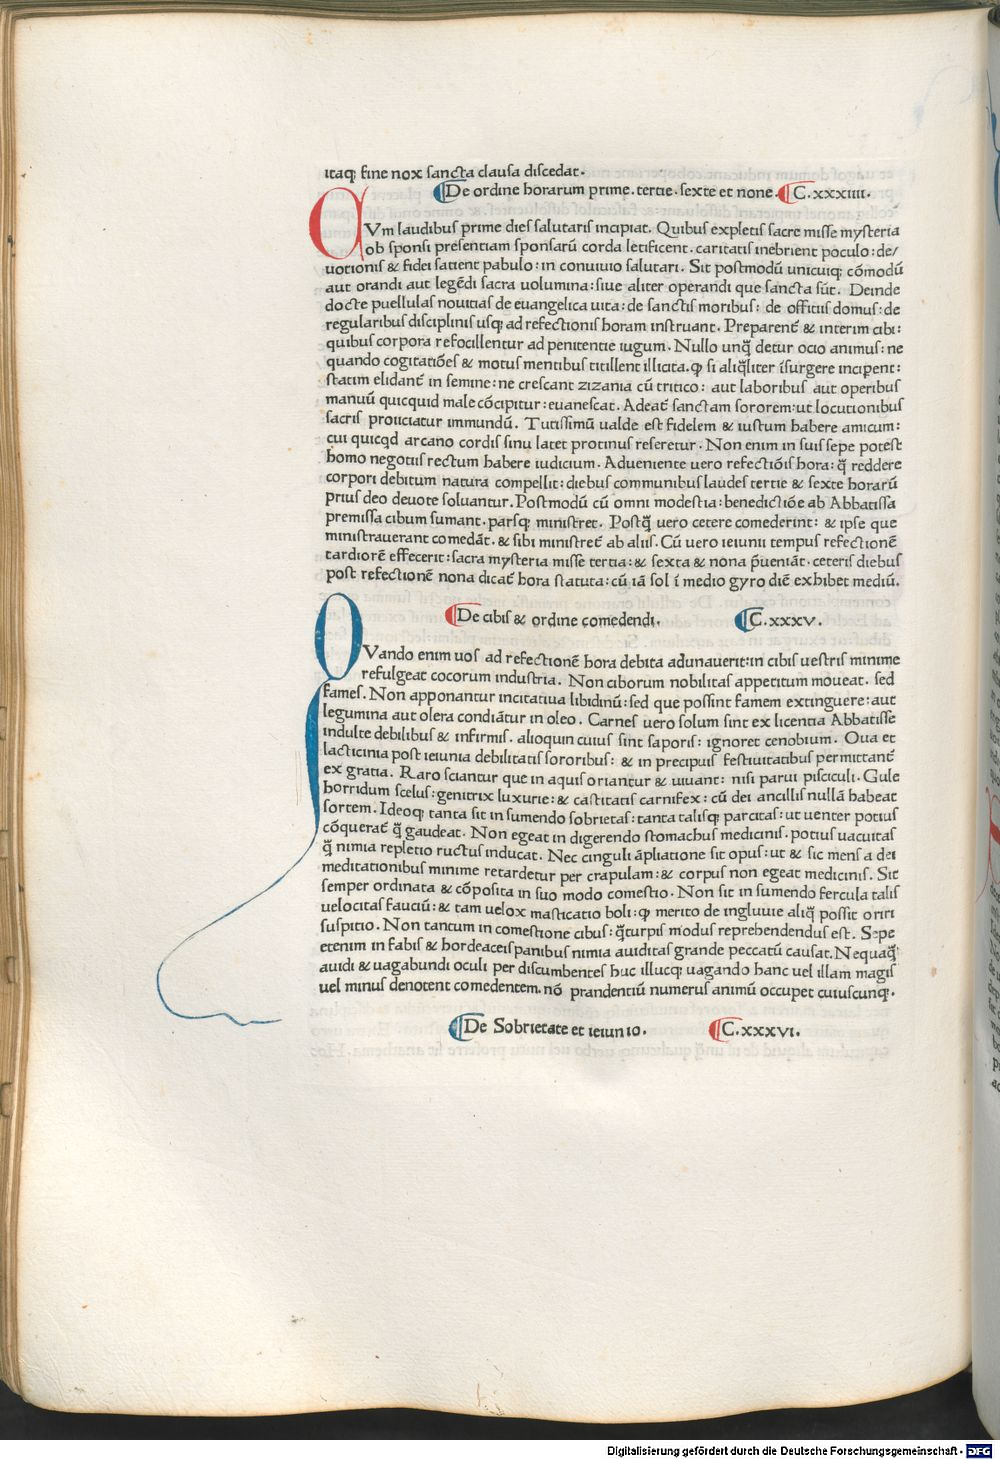 itaq; fine nox sancta clausa discedat.
De ordine horarum prime. tertie. sexte et none. C. xxxiiii.
CVm laudibus prime dies salutaris incipiat. Quibus expletis sacre misse mysteria
ob sponsi presentiam sponsarū corda letificent. caritatis inebrient poculo: de/
uotionis & fidei satient pabulo: in conuiuio salutari. Sit postmodū unicuiq; cōmodū
aut orandi aut legēdi sacra uolumina: siue aliter operandi que sancta sūt. Deinde
docte puellulas nouitias de euangelica uita: de sanctis moribus: de offitiis domus: de
regularibus disciplinis usq; ad refectionis horam instruant. Preparent̄ & interim cibi:
quibus corpora refocillentur ad penitentie iugum. Nullo unq̄ detur ocio animus: ne
quando cogitatiōes & motus mentibus titillent illicita. ꝙ si aliq̄liter īsurgere incip̄ent:
statim elidant̄ in semine: ne crescant zizania cū tritico: aut laboribus aut operibus
manuū quicquid male cōcipitur: euanescat. Adeat̄ sanctam sororem: ut locutionibus
sacris proiiciatur immundū. Tutissimū ualde est fidelem & iustum habere amicum:
cui quicqd arcano cordis sinu latet protinus reseretur. Non enim in suis sepe potest
homo negotiis rectum habere iudicium. Adueniente uero refectiōis hora: q̄ reddere
corpori debitum natura compellit: diebus communibus laudes tertie & sexte horarū
prius deo deuote soluantur. Postmodū cū omni modestia: benedictiōe ab Abbatissa
premissa cibum sumant. parsq; ministret. Postq̄ uero cetere comederint: & ipse que
ministrauerant comedāt. & sibi ministret̄ ab aliis. Cū uero ieiunii tempus refectionē
tardiorē effecerit: sacra mysteria misse tertia: & sexta & nona p̄ueniāt. ceteris diebus
post refectionē nona dicat̄ hora statuta: cū iā sol ī medio gyro diē exhibet mediū.
De cibis & ordine comedendi. C. xxxv.
QVando enim uos ad refectionē hora debita adunauerit: in cibis uestris minime
refulgeat cocorum industria. Non ciborum nobilitas appetitum moueat. sed
fames. Non apponantur incitatiua libidinū: sed que possint famem extinguere: aut
legumina aut olera condiātur in oleo. Carnes uero solum sint ex licentia Abbatisse
indulte debilibus & infirmis. alioquin cuius sint saporis: ignoret cenobium. Oua et
lacticinia post ieiunia debilitatis sororibus: & in precipuis festiuitatibus permittant̄
ex gratia. Raro sciantur que in aquis oriantur & uiuant: nisi parui pisciculi. Gule
horridum scelus: genitrix luxurie: & castitatis carnifex: cū dei ancillis nullā habeat
sortem. Ideoq; tanta sit in sumendo sobrietas: tanta talisq; parcitas: ut uenter potius
cōquerat̄ q̄ gaudeat. Non egeat in digerendo stomachus medicinis. potius uacuitas
q̄ nimia repletio ructus inducat. Nec cinguli āpliatione sit opus: ut & sic mens a dei
meditationibus minime retardetur per crapulam: & corpus non egeat medicinis. Sit
semper ordinata & cōposita in suo modo comestio. Non sit in sumendo fercula talis
uelocitas fauciū: & tam uelox masticatio boli: ꝙ merito de ingluuie aliq̄ possit oriri
suspitio. Non tantum in comestione cibus: q̄turpis modus reprehendendus est. Sepe
etenim in fabis & hordeaceis panibus nimia auiditas grande peccatū causat. Nequaq̄
auidi & uagabundi oculi per discumbentes huc illucq; uagando hanc uel illam magis
uel minus denotent comedentem. nō prandentiū numerus animū occupet cuiuscunq;.
De Sobrietate et ieiunio. C. xxxvi.
Digitalisierung gefördert durch die Deutsche Forschungsgemeinschaft - DFG